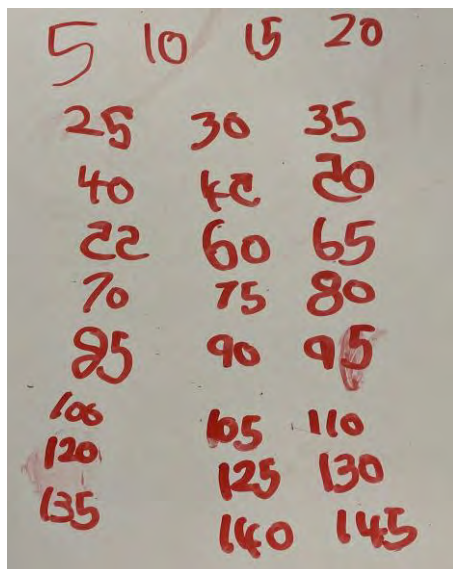 5 10 15 20
25 30 35
40 45 50
55 60 65
70 75 80
85 90 95
100 105 110
120 125 130
135 140 145